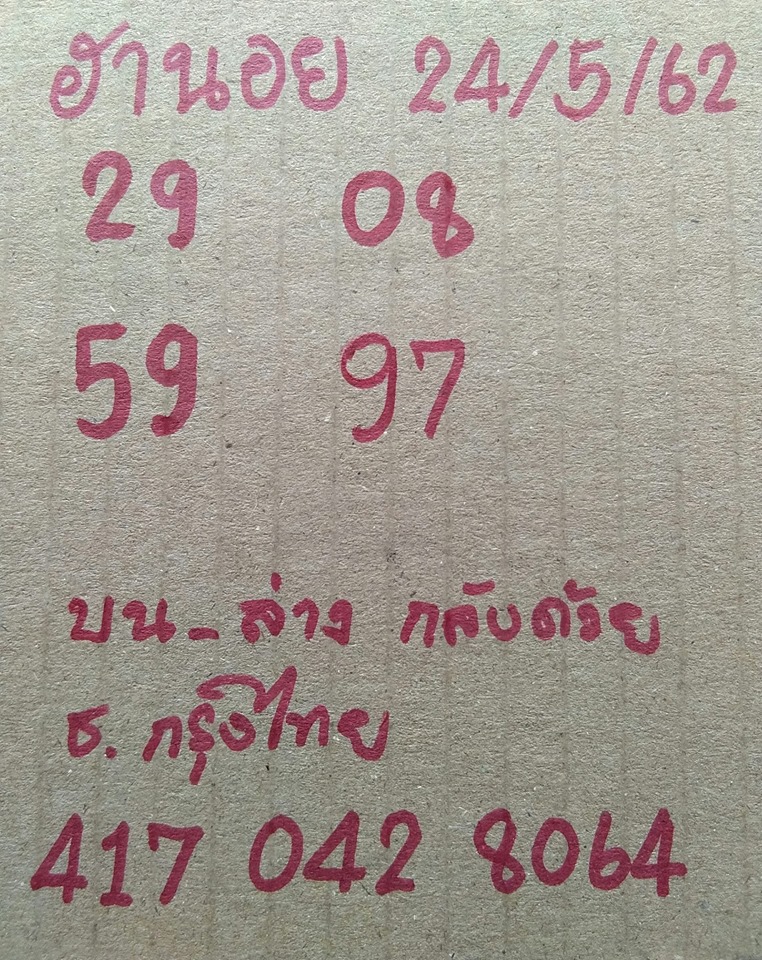 ฮานอย 24/5/62
29 08
59 97
บน - ล่าง กลับด้วย
ธ. กรุงไทย
417 042 8064